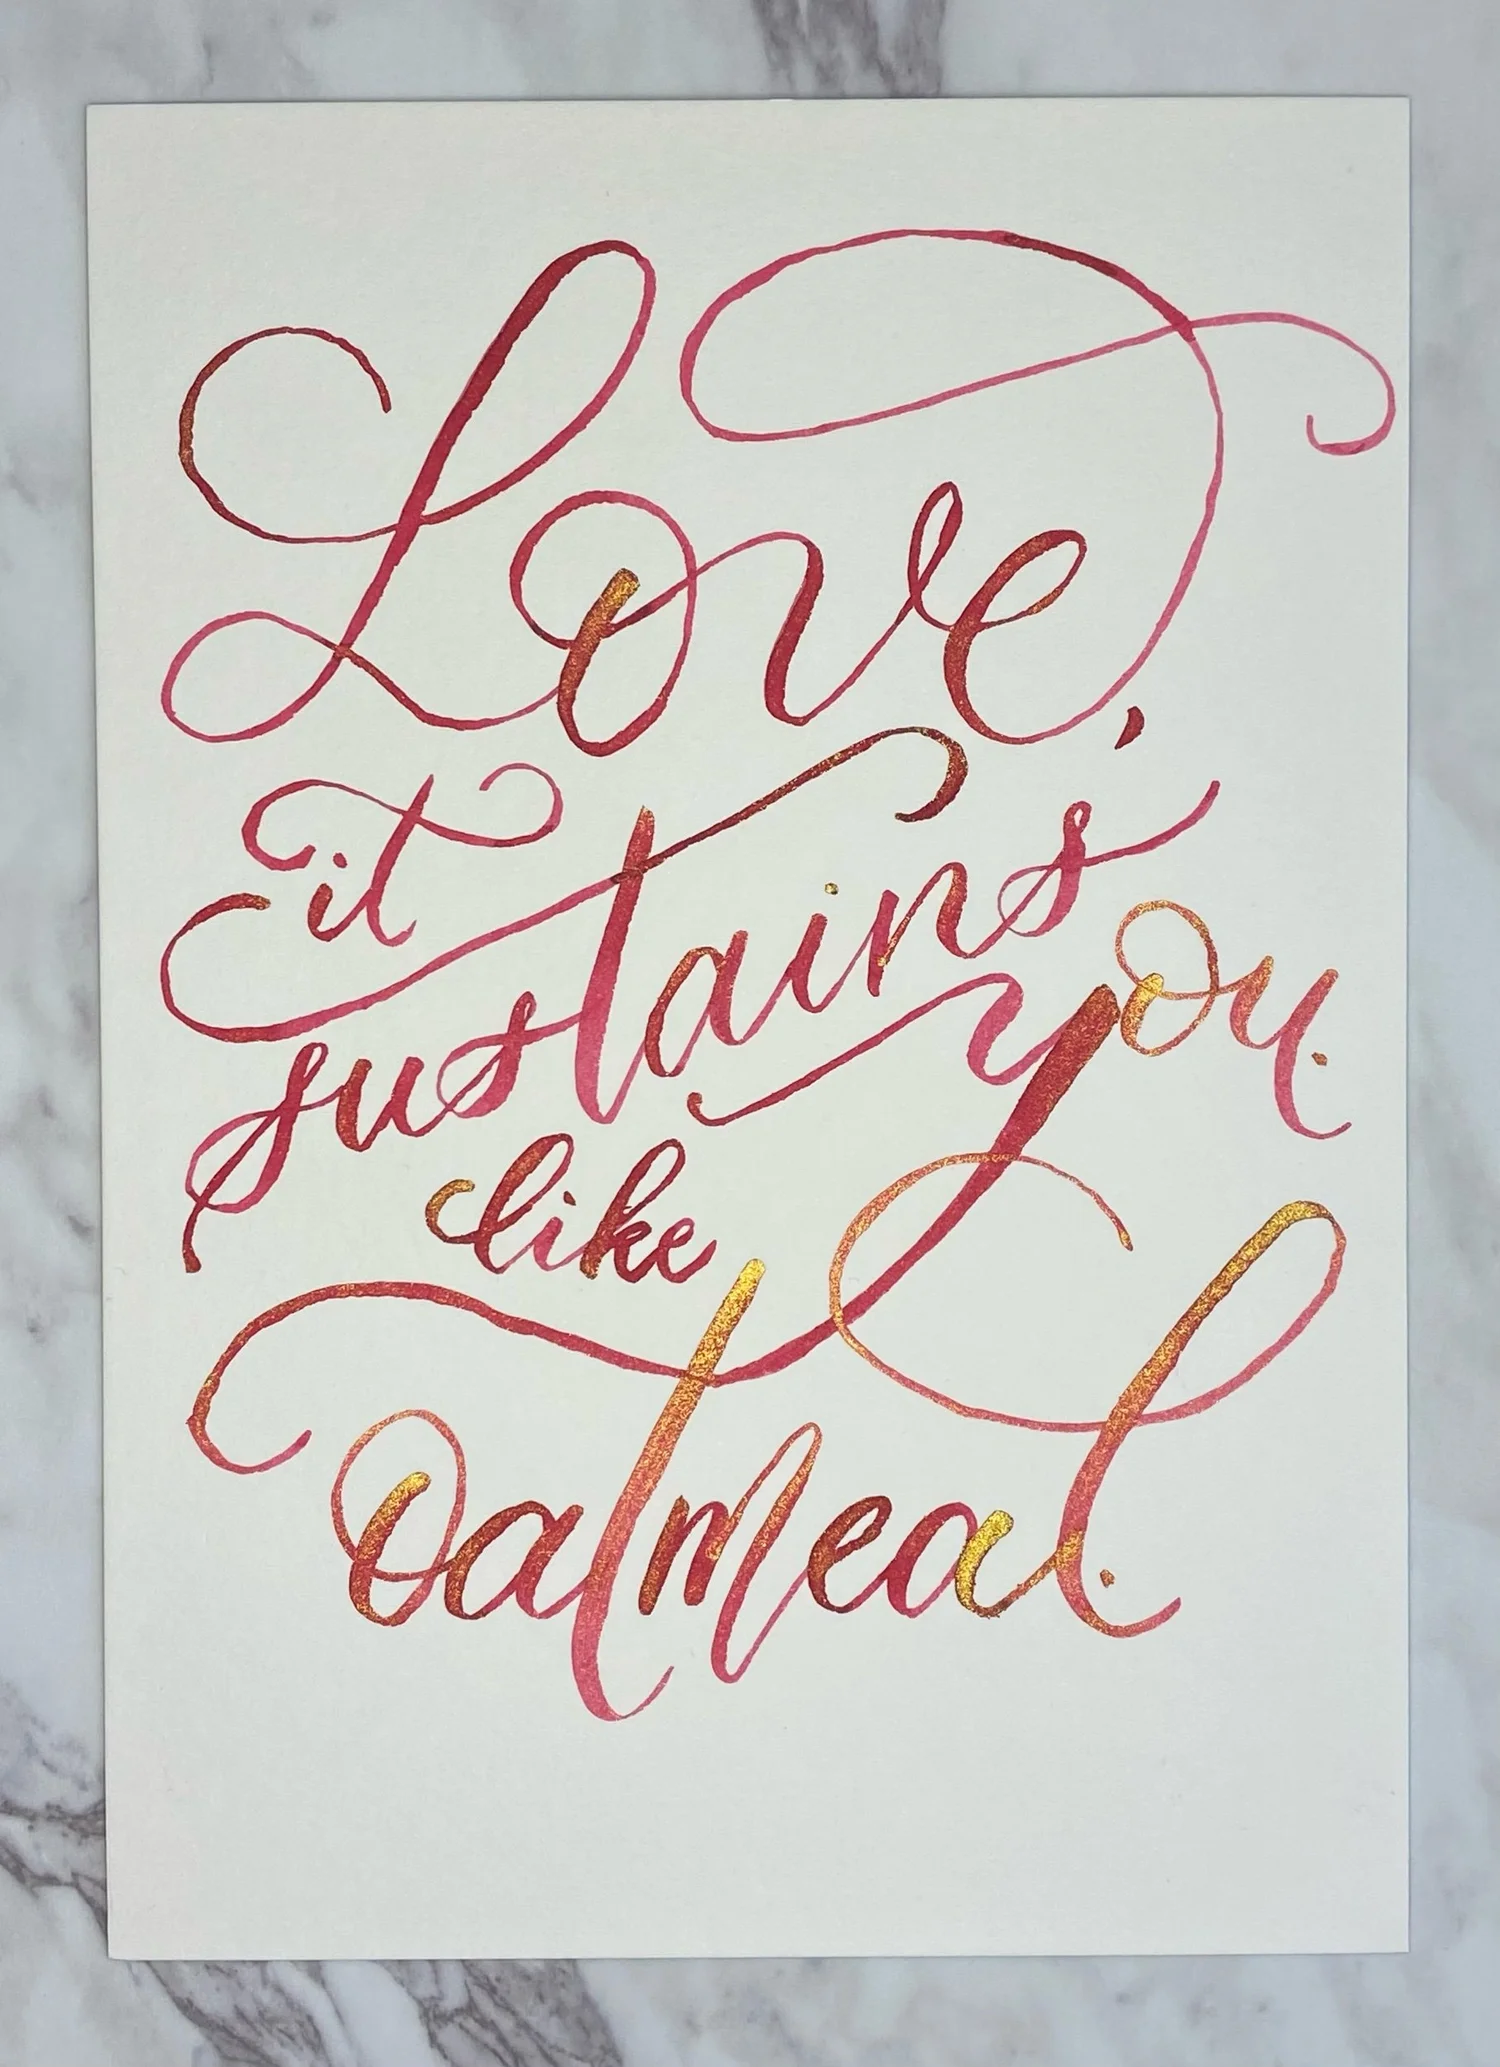 Love,
it
sustains you.
like
oatmeal.